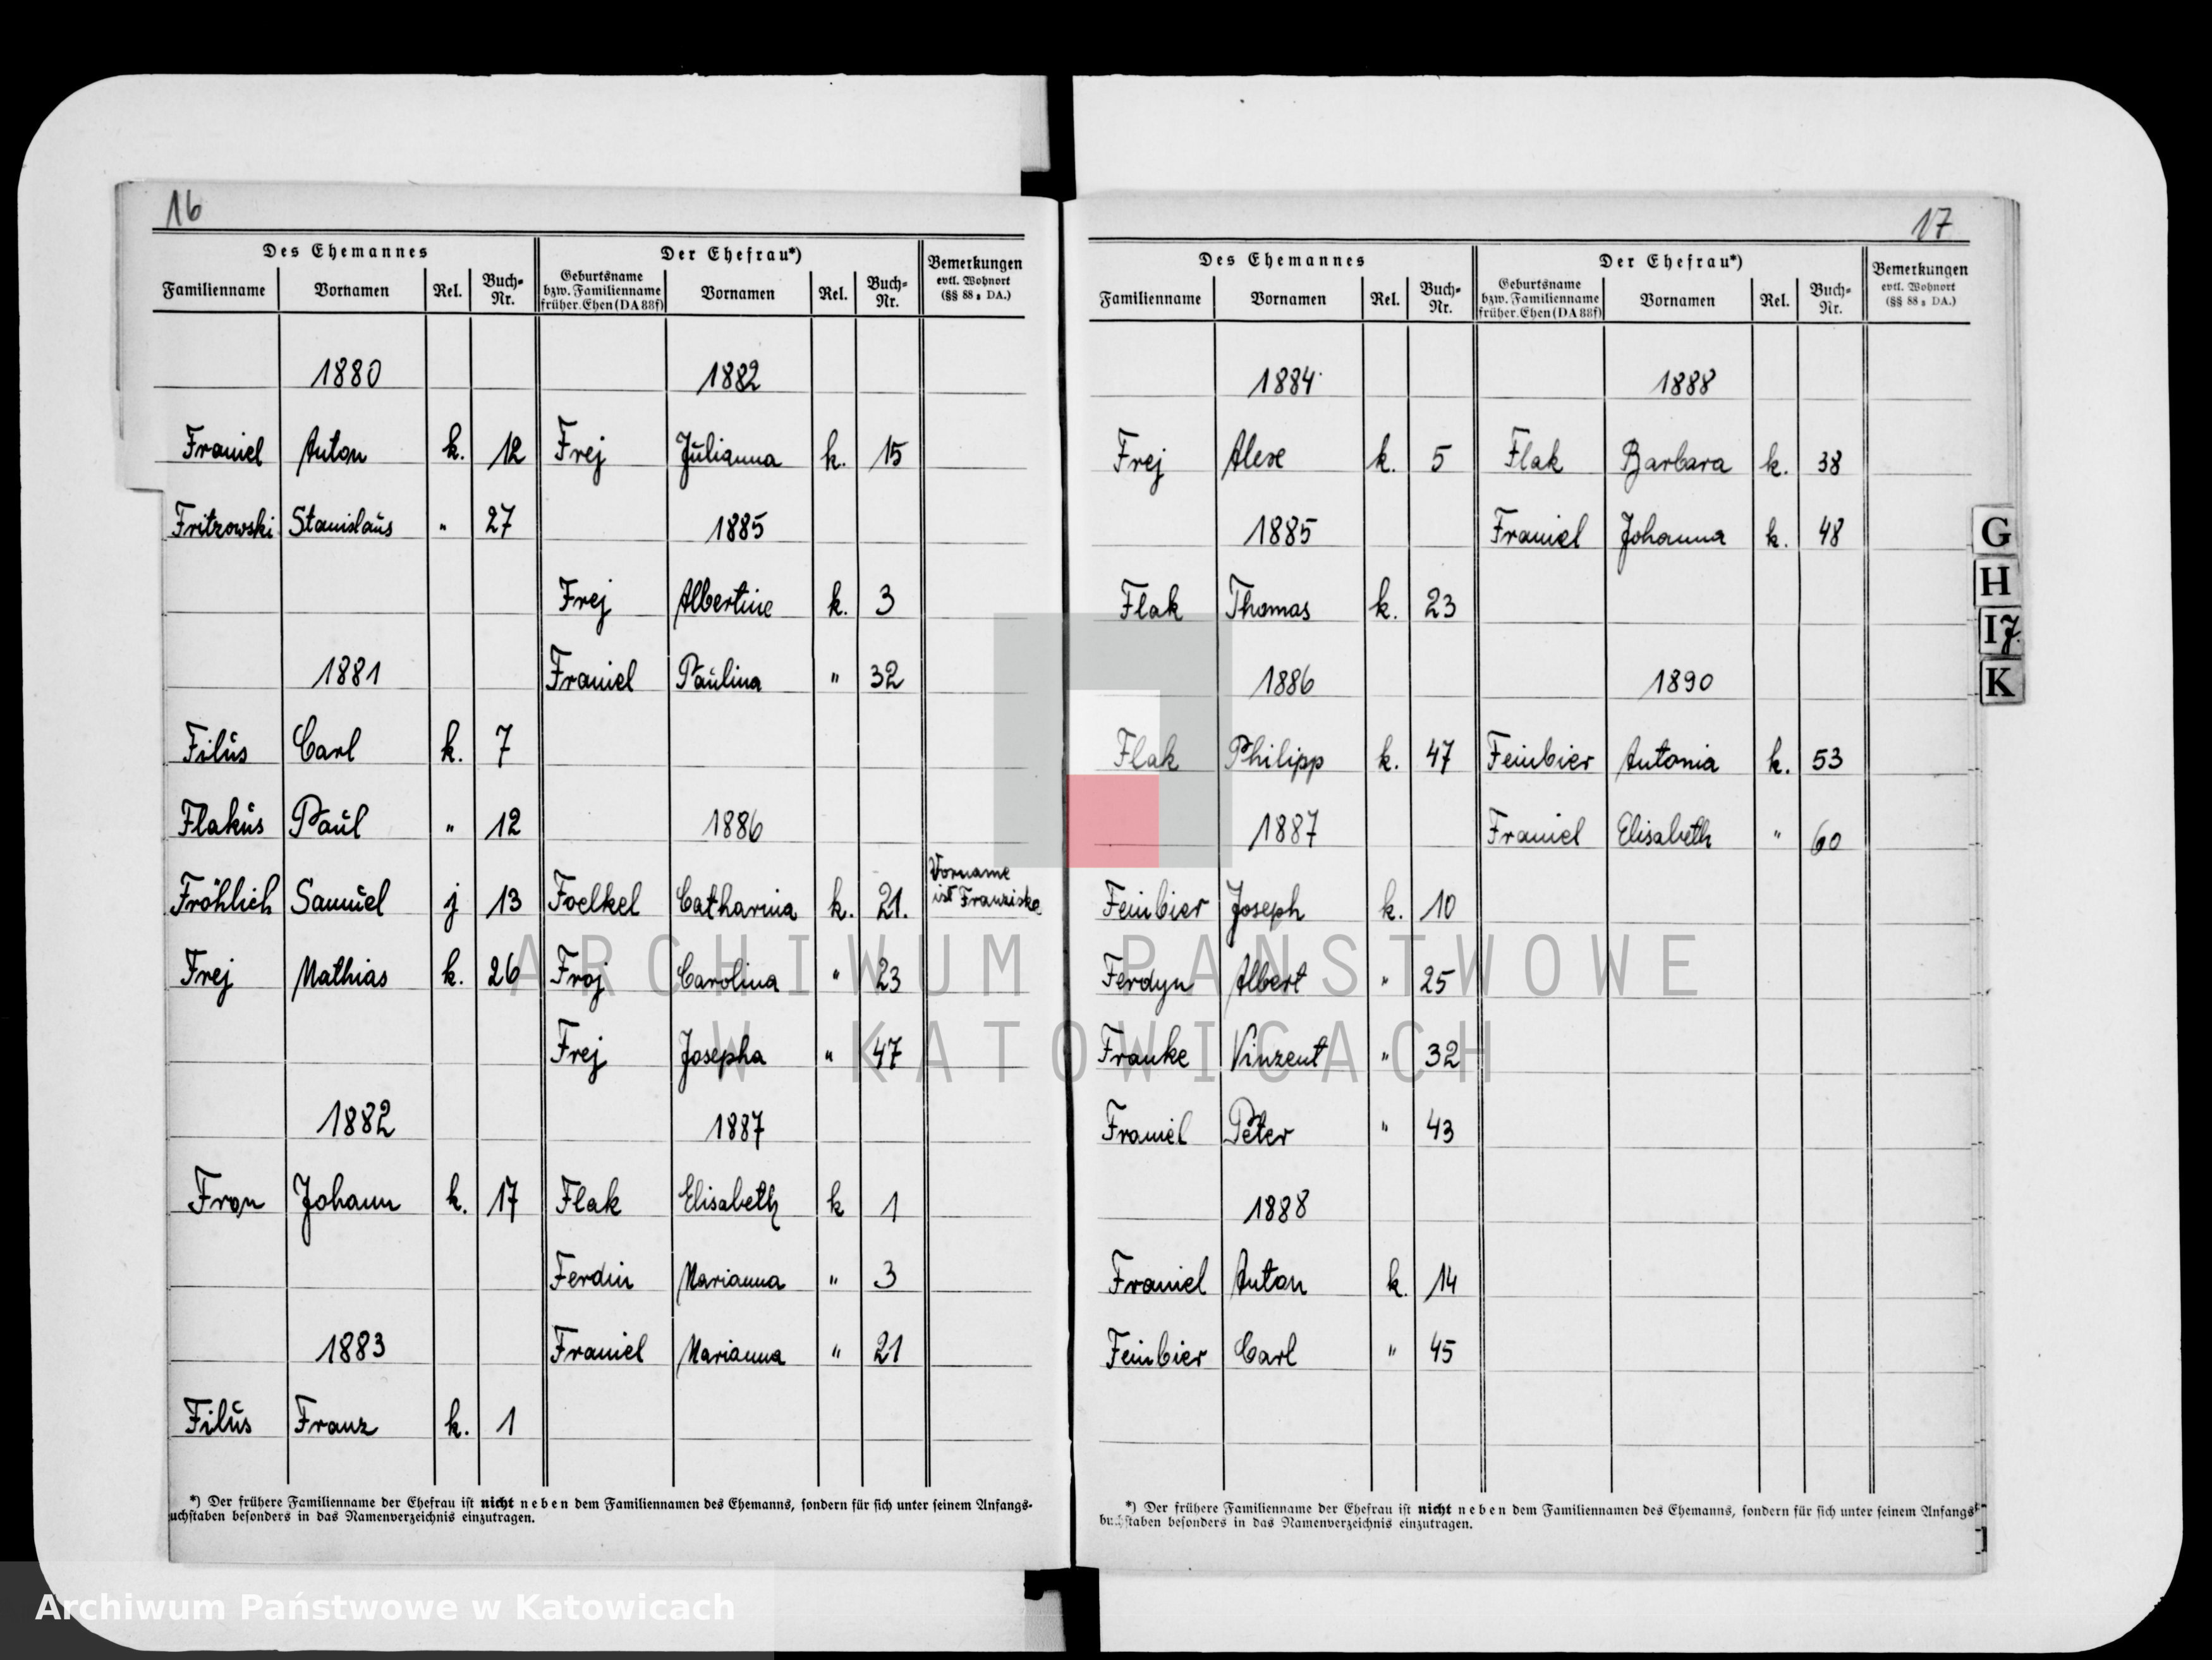 16
Des Ehemannes Der Ehefrau*) Bemerkungen evtl. Wohnort (§§ 88 g DA.)
Familienname Vornamen Rel. Buch-Nr. Geburtsname bzw. Familienname früher. Ehen (DA 88f) Vornamen Rel. Buch-Nr.
1880 1882
Franiel Anton k. 12 Frej Julianna k. 15
Fritzowski Stanislaus " 27 1885
Frej Albertine k. 3
1881 Franiel Paulina " 32
Filus Carl k. 7
Flakus Paul " 12 1886
Fröhlich Samuel j 13 Foelkel Catharina k. 21. Vorname ist Franziska
Frej Mathias k. 26 Froj Carolina " 23
Frej Josepha " 47
1882 1887
Fron Johann k. 17 Flak Elisabeth k 1
Ferdin Marianna " 3
1883 Franiel Marianna " 21
Filus Franz k. 1
*) Der frühere Familienname der Ehefrau ist nicht neben dem Familiennamen des Ehemanns, sondern für sich unter seinem Anfangs-
uchstaben besonders in das Namenverzeichnis einzutragen.
17
Des Ehemannes Der Ehefrau*) Bemerkungen evtl. Wohnort (§§ 88 g DA.)
Familienname Vornamen Rel. Buch-Nr. Geburtsname bzw. Familienname früher. Ehen (DA 88f) Vornamen Rel. Buch-Nr.
1884 1888
Frej Alexe k. 5 Flak Barbara k. 38
1885 Franiel Johanna k. 48
Flak Thomas k. 23
1886 1890
Flak Philipp k. 47 Feinbier Antonia k. 53
1887 Franiel Elisabeth " 60
Feinbier Joseph k. 10
Ferdyn Albert " 25
Franke Vinzent " 32
Franiel Peter " 43
1888
Franiel Anton k. 14
Feinbier Carl " 45
*) Der frühere Familienname der Ehefrau ist nicht neben dem Familiennamen des Ehemanns, sondern für sich unter seinem Anfangs-
buchstaben besonders in das Namenverzeichnis einzutragen.
G
H
I J.
K
ARCHIWUM PAŃSTWOWE
W KATOWICACH
Archiwum Państwowe w Katowicach